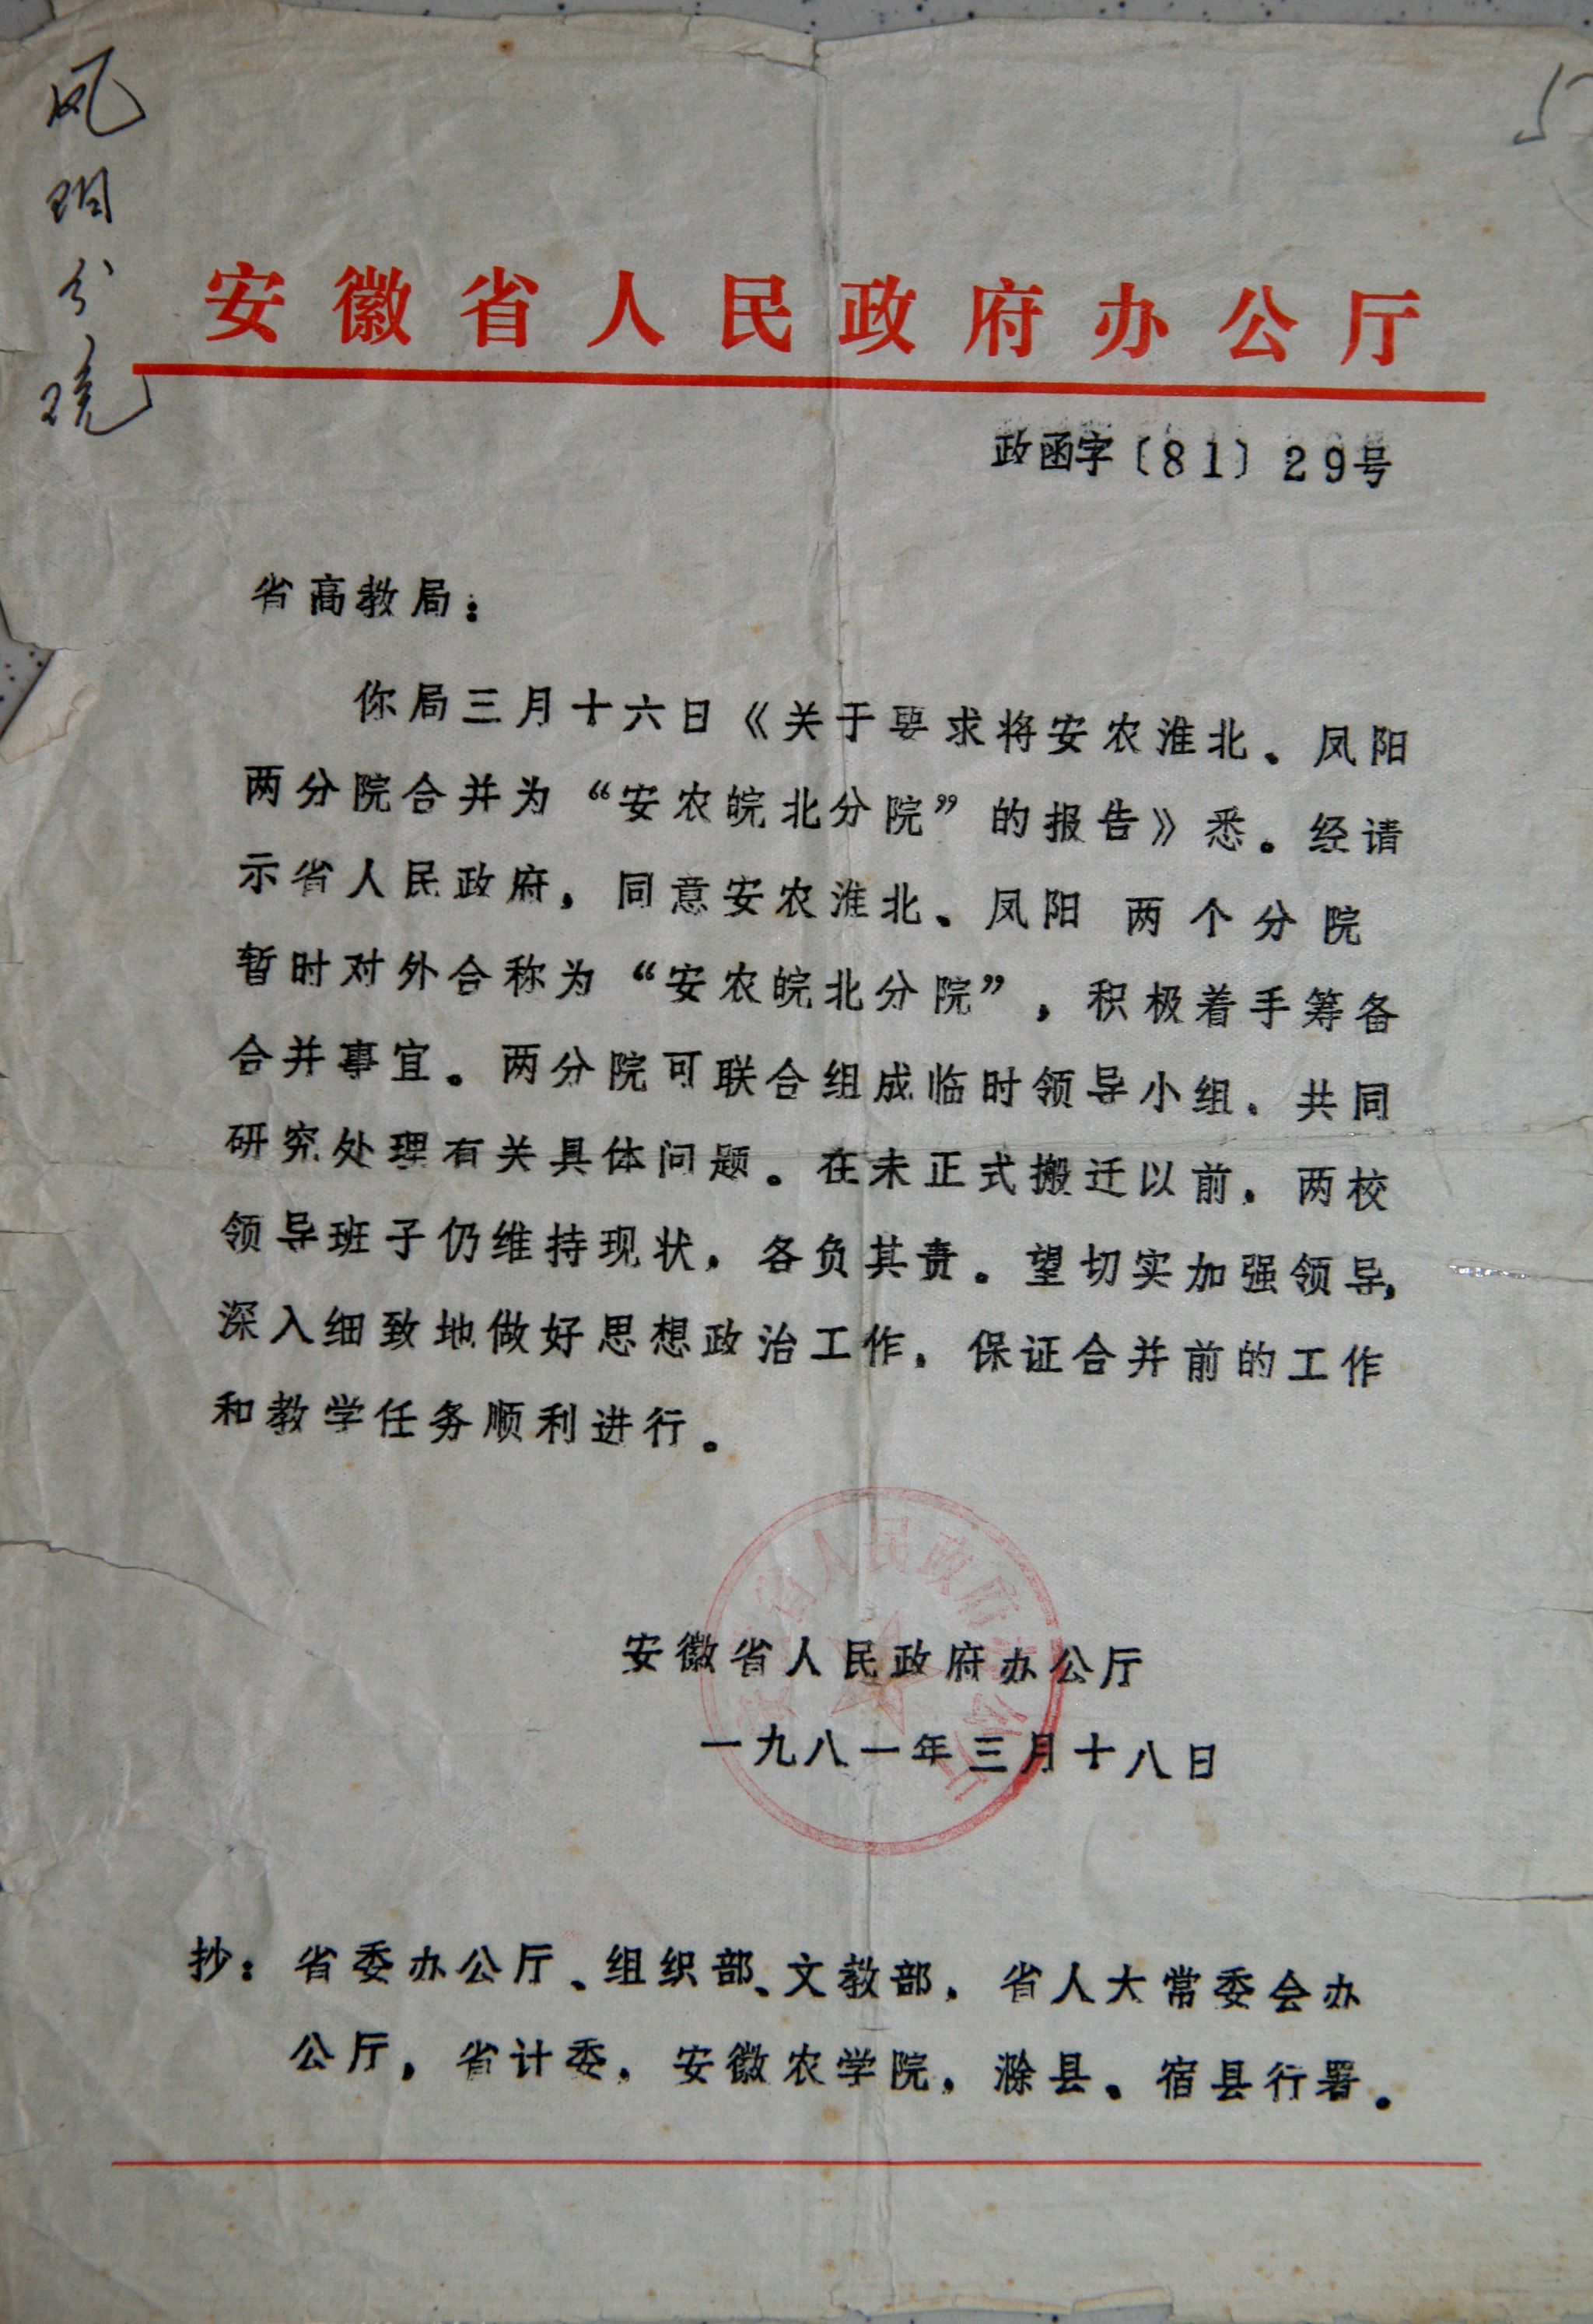 凤阳分院
安徽省人民政府办公厅
政函字〔81〕29号
省高教局：
你局三月十六日《关于要求将安农淮北、凤阳
两分院合并为“安农皖北分院”的报告》悉。经请
示省人民政府，同意安农淮北、凤阳两个分院
暂时对外合称为“安农皖北分院”，积极着手筹备
合并事宜。两分院可联合组成临时领导小组，共同
研究处理有关具体问题。在未正式搬迁以前，两校
领导班子仍维持现状，各负其责。望切实加强领导，
深入细致地做好思想政治工作，保证合并前的工作
和教学任务顺利进行。
安徽省人民政府办公厅
一九八一年三月十八日
抄：省委办公厅、组织部、文教部，省人大常委会办
公厅，省计委，安徽农学院，滁县、宿县行署。